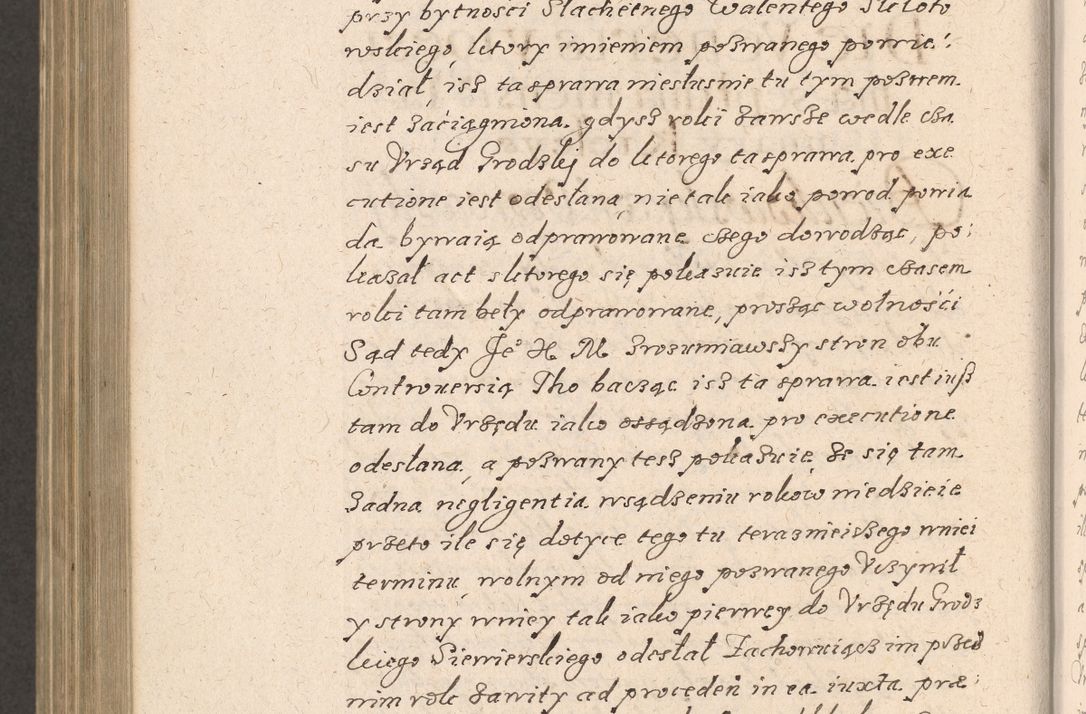 przy bytności Slachetnego Walentego Steloto
wskiego, ktory imieniem pozwanego powie:
dział, isz ta sprawa niesłusnie tu tym pozwem
iest zaciągniona. gdysz rokï zawsze wedle cza
su Vrząd Grodzkį do ktorego ta sprawa pro exe
cutione iest odesłana, nie tak iako powod powia
da bywaią odprawowane. czego dowodząc, po:
kazał act z ktorego się pokazuie isz tym czasem
roki tam beły odprawowane, prosząc wolnośći
Sąd tedy Je° K. M. zrozumiawszy stron obu
Controuersią Tho bacząc isz ta sprawa iest iusz
tam do Vrzędu iako ossądzona pro executione
odesłana, a pozwany tesz pokazuie, że się tam
żadna negligentia wsądzeniu rokow niedzieie
przeto ile się dotyce tego tu terazniejszego wniei
terminu, wolnym od niego pozwanego Vczynił
y strony wniey tak iako pierwey do Vrzędu Grodz
kiego Siewierskiego odesłał Zachowuiącz im przed
nim rok zawity ad proceden̄ in ea iuxta præ: